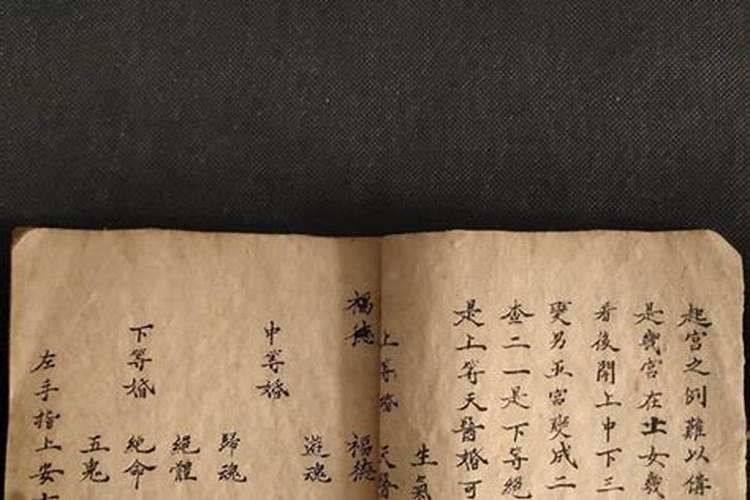 起宮之例難以傳
是幾宮在土女幾
看後開上中下三
巽男五宮變成二
查二一是下等絕
是上等天醫婚可
生氣
上等婚 天醫
福德 福德
遊魂
中等婚
歸魂
絕體
下等婚 絕命
五鬼
左手指上安